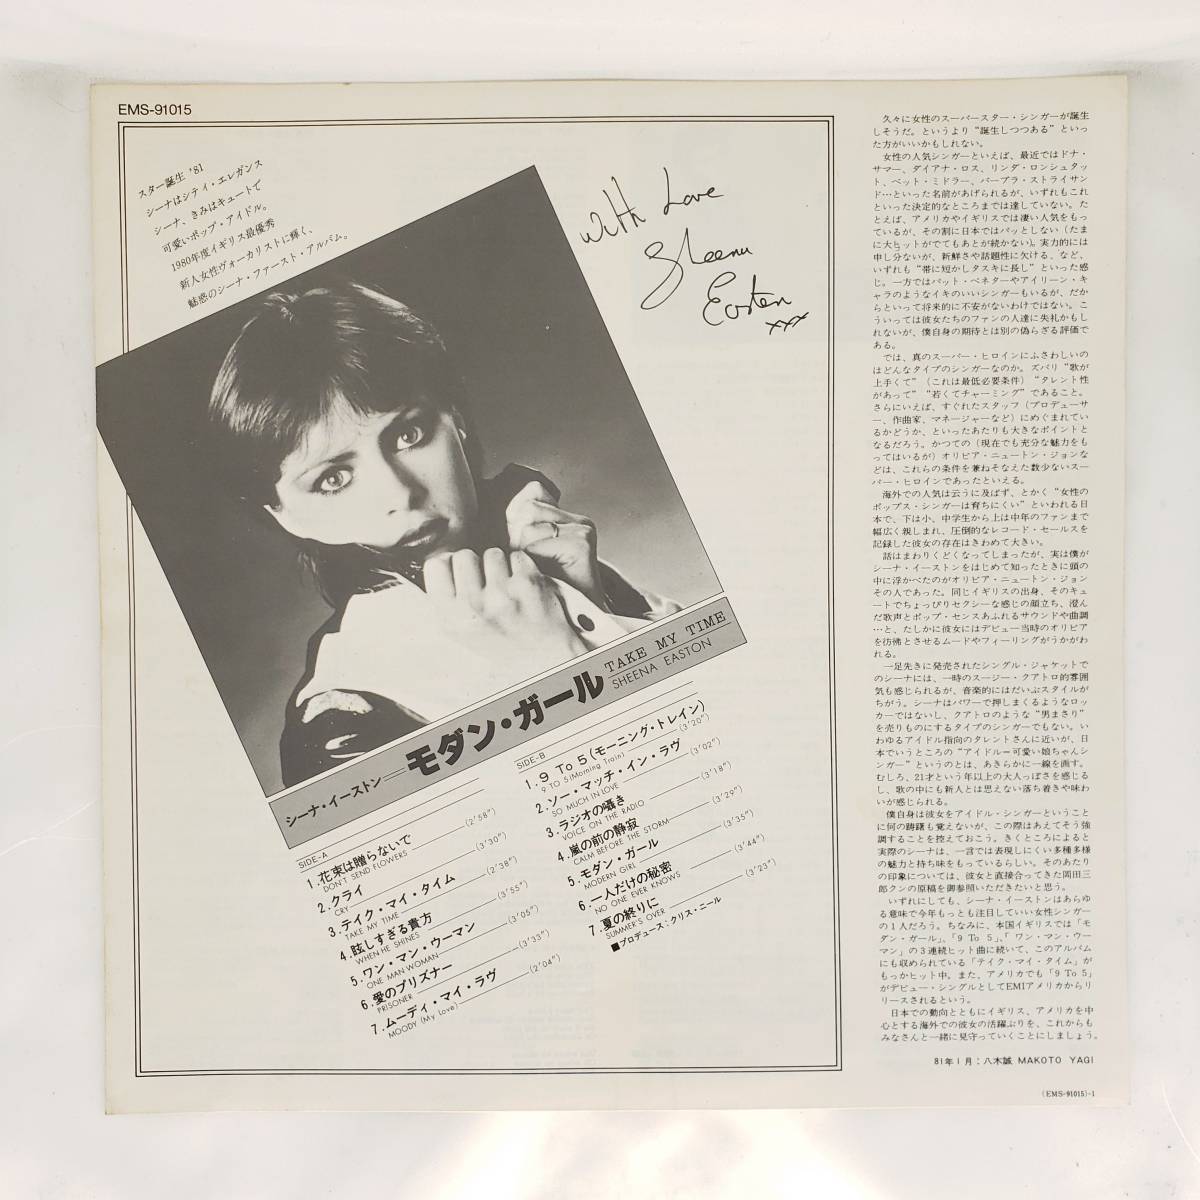 EMS-91015
スター誕生 '81
シーナはシティ・エレガンス
シーナ、きみはキュートで
可愛いポップ・アイドル。
1980年度イギリス最優秀
新人女性ヴォーカリストに輝く、
魅惑のシーナ・ファースト・アルバム。
With Love
Sheena
Easton
xxx
シーナ・イーストン=モダン・ガール
TAKE MY TIME
SHEENA EASTON
SIDE-A
1.花束は贈らないで (2'58")
DON'T SEND FLOWERS
2.クライ (3'30")
CRY
3.テイク・マイ・タイム (2'38")
TAKE MY TIME
4.眩しすぎる貴方 (3'55")
WHEN HE SHINES
5.ワン・マン・ウーマン (3'05")
ONE MAN WOMAN
6.愛のプリズナー (3'33")
PRISONER
7.ムーディ・マイ・ラヴ (2'04")
MOODY (My Love)
SIDE-B
1.9 To 5 (モーニング・トレイン) (3'20")
9 TO 5 (Morning Train)
2.ソー・マッチ・イン・ラヴ (3'02")
SO MUCH IN LOVE
3.ラジオの囁き (3'18")
VOICE ON THE RADIO
4.嵐の前の静寂 (3'29")
CALM BEFORE THE STORM
5.モダン・ガール (3'35")
MODERN GIRL
6.一人だけの秘密 (3'44")
NO ONE EVER KNOWS
7.夏の終りに (3'23")
SUMMER'S OVER
■プロデュース：クリス・ニール
久々に女性のスーパースター・シンガーが誕生
しそうだ。というより“誕生しつつある”といっ
た方がいいかもしれない。
女性の人気シンガーといえば、最近ではドナ・
サマー、ダイアナ・ロス、リンダ・ロンシュタッ
ト、ベット・ミドラー、バーブラ・ストライサン
ド…といった名前があげられるが、いずれもこれ
といった決定的なところまでは達していない。た
とえば、アメリカやイギリスでは凄い人気をもっ
ているが、その割に日本ではパッとしない(たま
に大ヒットがでてもあとが続かない)。実力的には
申し分ないが、新鮮さや話題性に欠ける、など、
いずれも“帯に短かしタスキに長し”といった感
じ。一方ではパット・ベネターやアイリーン・キ
ャラのようなイキのいいシンガーもいるが、だか
らといって将来的に不安がないわけではない。こ
ういっては彼女たちのファンの人達に失礼かもし
れないが、僕自身の期待とは別の偽らざる評価で
ある。
では、真のスーパー・ヒロインにふさわしいの
はどんなタイプのシンガーなのか。ズバリ“歌が
上手くて”(これは最低必要条件)“タレント性
があって”“若くてチャーミング”であること。
さらにいえば、すぐれたスタッフ(プロデューサ
ー、作曲家、マネージャーなど)にめぐまれてい
るかどうか、といったあたりも大きなポイントと
なるだろう。かつての(現在でも充分な魅力をも
ってはいるが)オリビア・ニュートン・ジョンな
どは、これらの条件を兼ねそなえた数少ないスー
パー・ヒロインであったといえる。
海外での人気は云うに及ばず、とかく“女性の
ポップス・シンガーは育ちにくい”といわれる日
本で、下は小、中学生から上は中年のファンまで
幅広く親しまれ、圧倒的なレコード・セールスを
記録した彼女の存在はきわめて大きい。
話はまわりくどくなってしまったが、実は僕が
シーナ・イーストンをはじめて知ったときに頭の
中に浮かべたのがオリビア・ニュートン・ジョン
その人であった。同じイギリスの出身、そのキュ
ートでちょっぴりセクシーな感じの顔立ち、澄ん
だ歌声とポップ・センスあふれるサウンドや曲調
…と、たしかに彼女にはデビュー当時のオリビア
を彷彿とさせるムードやフィーリングがうかがわ
れる。
一足先きに発売されたシングル・ジャケットで
のシーナには、一時のスージー・クアトロ的雰囲
気も感じられるが、音楽的にはだいぶスタイルが
ちがう。シーナはパワーで押しまくるようなロッ
カーではないし、クアトロのような“男まさり”
を売りものにするタイプのシンガーでもない。い
わゆるアイドル指向のタレントさんに近いが、日
本でいうところの“アイドル＝可愛い娘ちゃんシ
ンガー”というのとは、あきらかに一線を画す。
むしろ、21才という年以上の大人っぽさを感じる
し、歌の中にも新人とは思えない落ち着きや味わ
いが感じられる。
僕自身は彼女をアイドル・シンガーということ
に何の躊躇も覚えないが、この際はあえてそう強
調することを控えておこう。きくところによると
実際のシーナは、一言では表現しにくい多種多様
の魅力と持ち味をもっているらしい。そのあたり
の印象については、彼女と直接合ってきた岡田三
郎クンの原稿を御参照いただきたいと思う。
いずれにしても、シーナ・イーストンはあらゆ
る意味で今年もっとも注目していい女性シンガー
の1人だろう。ちなみに、本国イギリスでは「モ
ダン・ガール」、「9 To 5」、「ワン・マン・ウー
マン」の3連続ヒット曲に続いて、このアルバム
にも収められている「テイク・マイ・タイム」が
もっかヒット中。また、アメリカでも「9 To 5」
がデビュー・シングルとしてEMIアメリカからリ
リースされるという。
日本での動向とともにイギリス、アメリカを中
心とする海外での彼女の活躍ぶりを、これからも
みなさんと一緒に見守っていくことにしましょう。
81年1月：八木誠 MAKOTO YAGI
(EMS-91015)-1